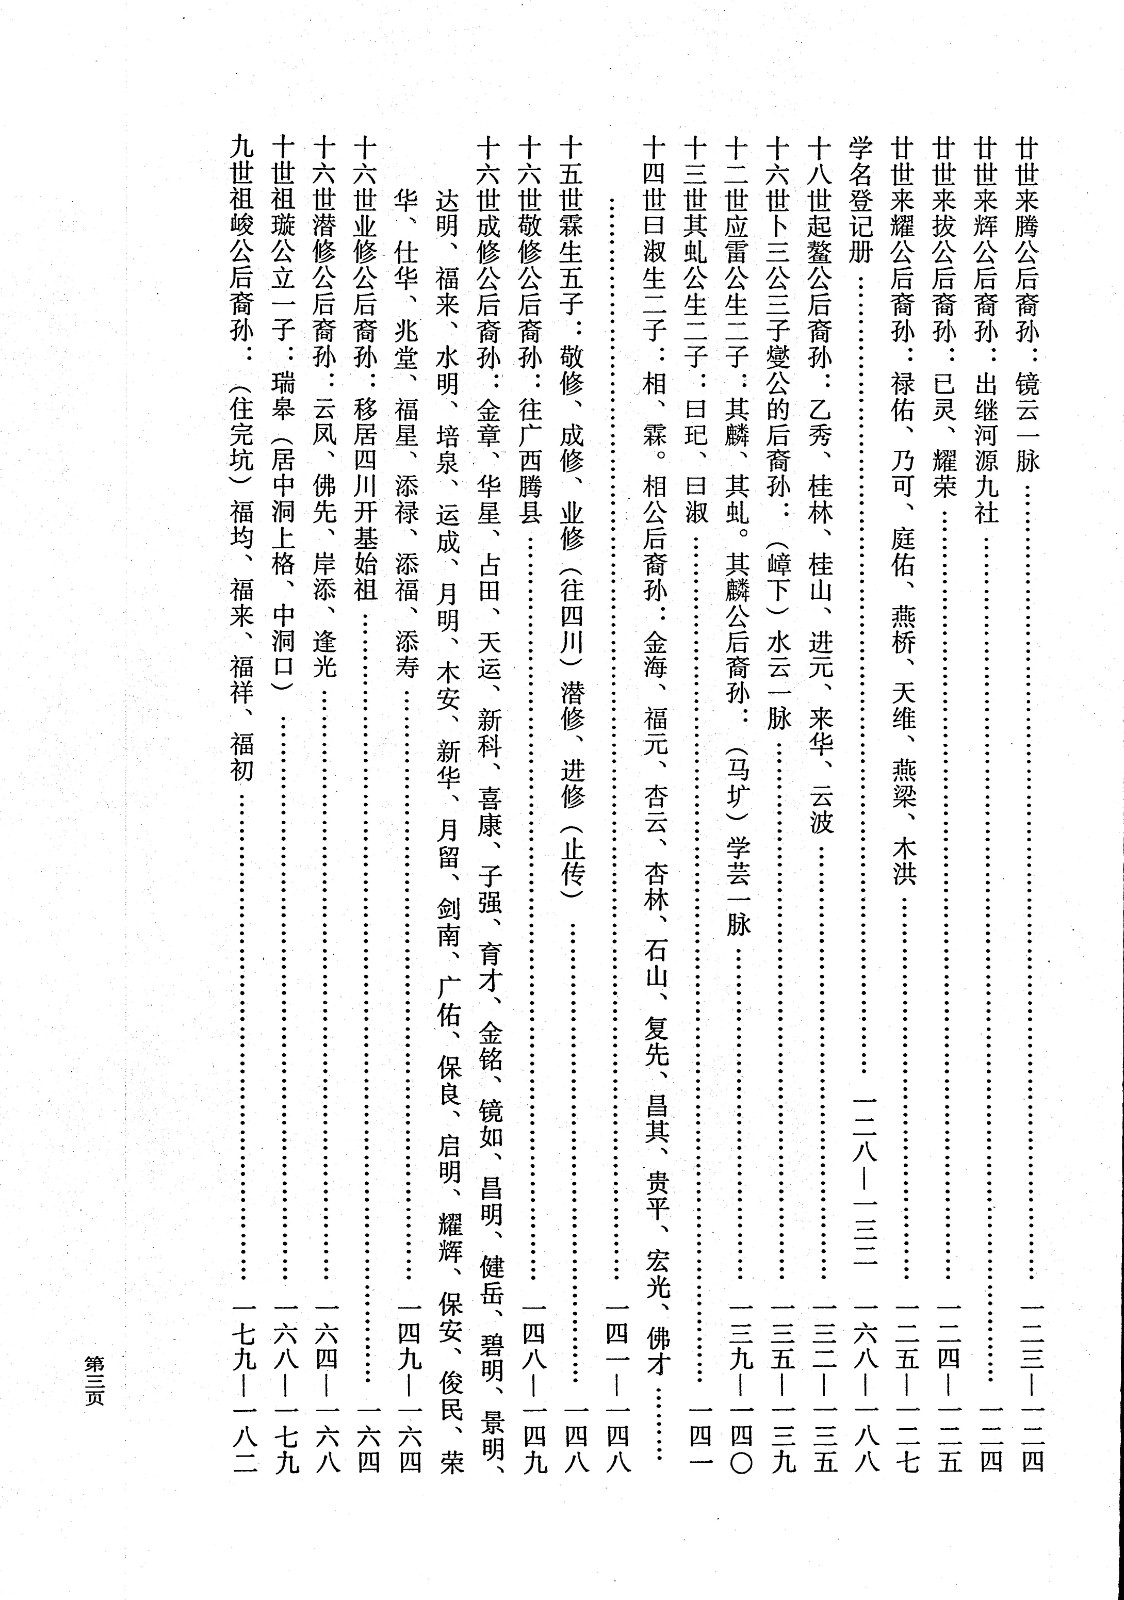 廿世来腾公后裔孙：镜云一脉……一二三—一二四
廿世来辉公后裔孙：出继河源九社……一二四
廿世来拔公后裔孙：已灵、耀荣……一二四—一二五
廿世来耀公后裔孙：禄佑、乃可、庭佑、燕桥、天维、燕梁、木洪……一二五—一二七
学名登记册……一二八—一三二　一六八—一八八
十八世起鳌公后裔孙：乙秀、桂林、桂山、进元、来华、云波……一三二—一三五
十六世卜三公三子燮公的后裔孙：（嶂下）水云一脉……一三五—一三九
十二世应雷公生二子：其麟、其虬。其麟公后裔孙：（马圹）学芸一脉……一三九—一四〇
十三世其虬公生二子：曰玘、曰淑……一四一
十四世曰淑生二子：相、霖。相公后裔孙：金海、福元、杏云、杏林、石山、复先、昌其、贵平、宏光、佛才……
……一四一—一四八
十五世霖生五子：敬修、成修、业修（往四川）潜修、进修（止传）……一四八
十六世敬修公后裔孙：往广西腾县……一四八—一四九
十六世成修公后裔孙：金章、华星、占田、天运、新科、喜康、子强、育才、金铭、镜如、昌明、健岳、碧明、景明、
达明、福来、水明、培泉、运成、月明、木安、新华、月留、剑南、广佑、保良、启明、耀辉、保安、俊民、荣
华、仕华、兆堂、福星、添禄、添福、添寿……一四九—一六四
十六世业修公后裔孙：移居四川开基始祖……一六四
十六世潜修公后裔孙：云凤、佛先、岸添、逢光……一六四—一六八
十世祖璇公立一子：瑞皋（居中洞上格、中洞口）……一六八—一七九
九世祖峻公后裔孙：（住完坑）福均、福来、福祥、福初……一七九—一八二
第三页